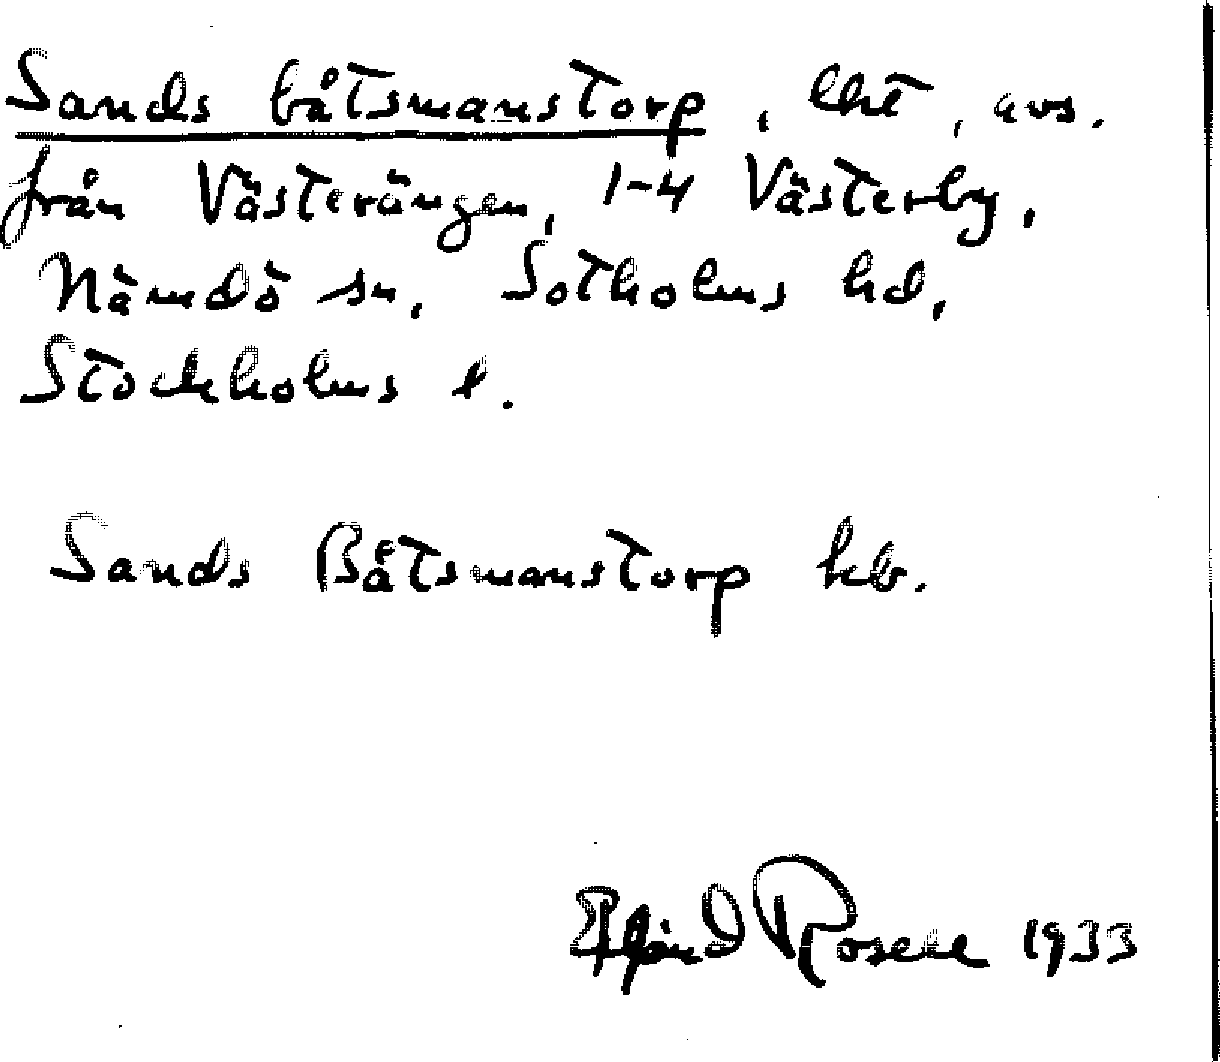 Sands båtsmanstorp, lht, avs.
från Västerängen, 1-4 Västerby,
Nämdö sn, Sotholms hd,
Stockholms l.
Sands Båtsmanstorp kb.
Rosell 1933